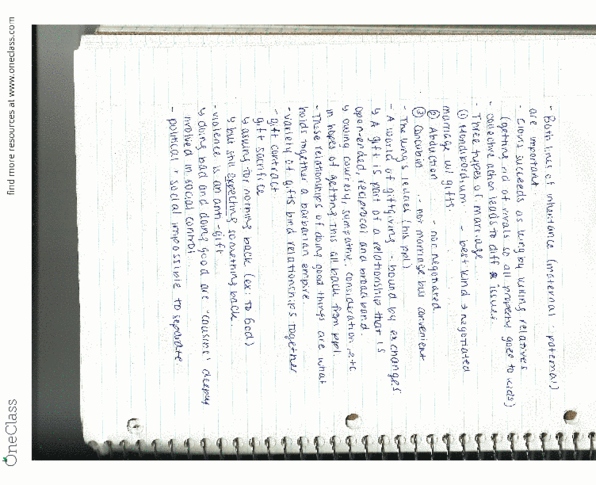 - Both lines of inheritance (maternal + paternal)
are important.
- Clovis succeeds as king by killing relatives
(getting rid of rivals so all property goes to kids)
- collective action leads to diff issues.
- Three types of marriage
① - best kind → negotiated
marriage w/ gifts.
② Abduction - not negotiated
③ - not marriage but convenient
- The king's retinue (his ppl)
- A world of gift giving - bound by exchanges
↳ A gift is part of a relationship that is
open-ended, reciprocal and broad bond.
↳ owing courtesy, consideration, etc
in hopes of getting this all back from ppl.
- These relationships of doing good things are what
holds together a barbarian empire.
- variety of gifts bind relationships together
- gift contract
gift sacrifice
↳ asking for nothing back (ex to God)
↳ but still expecting something back.
- violence is an anti-gift
↳ doing bad and doing good are 'cousins' deeply
involved in social control.
- political + social impossible to separate
find more resources at www.oneclass.com
OneClass